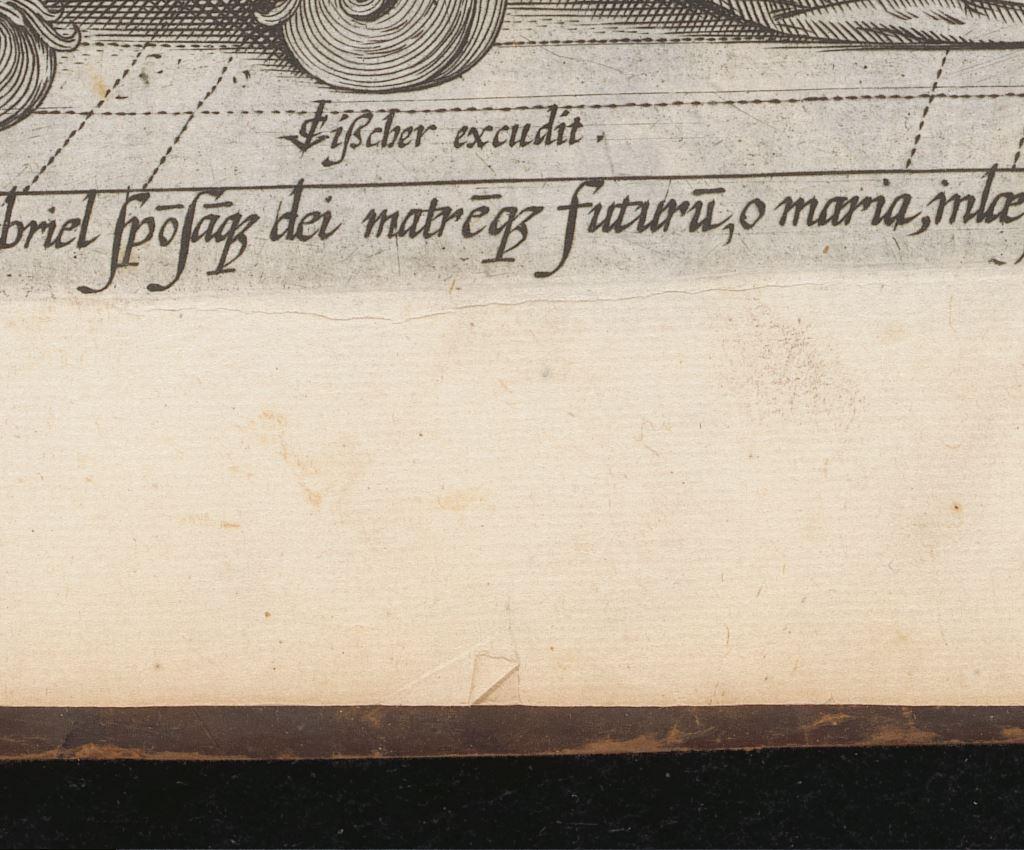 ₵ißcher excudit .
briel ſpōſāqꝫ dei matrēqꝫ futurū, o maria, inlæ